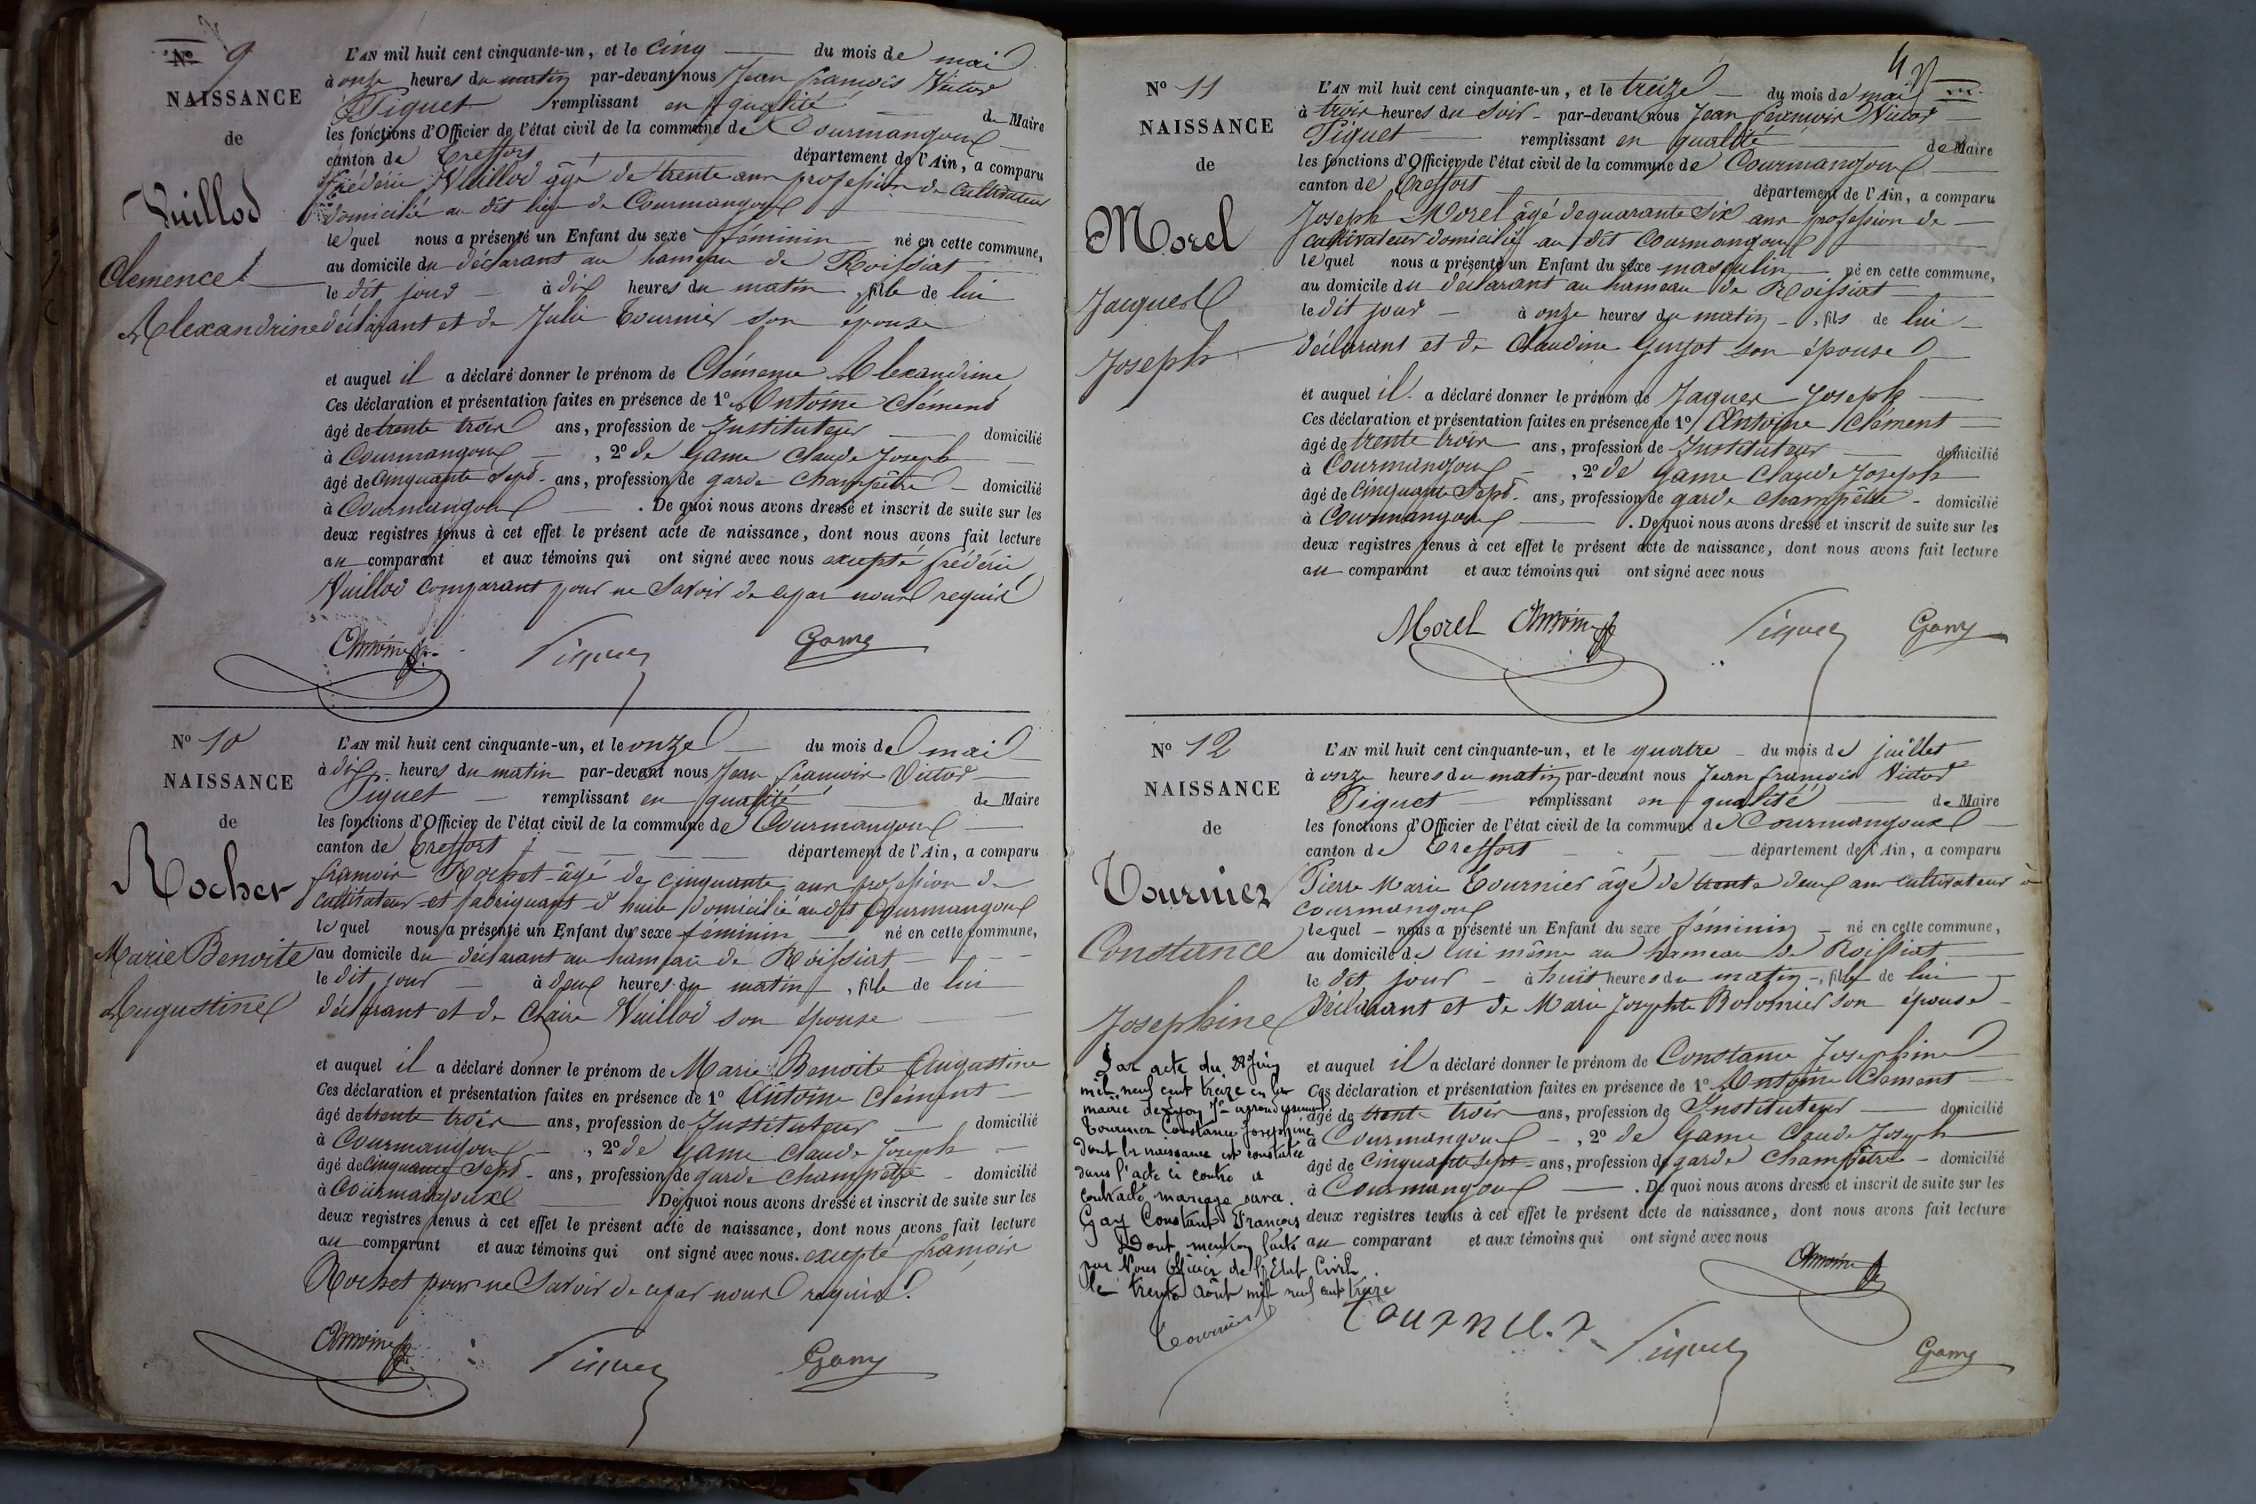 N° 9
NAISSANCE
de
Vuillod
Clemence
Alexandrine
L'AN mil huit cent cinquante-un, et le cinq du mois de mai
à onze heures du matin par-devant nous Jean françois Victor
Piquet remplissant en qualité de Maire
les fonctions d'Officier de l'état civil de la commune de Courmangoux
canton de Treffort département de l'Ain, a comparu
frédéric Vuillod âgé de trente ans profession de Cultivateur
domicilié au dit lieu de Courmangoux
lequel nous a présenté un Enfant du sexe féminin né en cette commune,
au domicile du déclarant au hameau de Roissiat
le dit jour à dix heures du matin, fille de lui
déclarant et de Julie Tournier son épouse
et auquel il a déclaré donner le prénom de Clémence Alexandrine
Ces déclaration et présentation faites en présence de 1° Antoine Clément
âgé de trente trois ans, profession de Instituteur domicilié
à Courmangoux, 2° de Game Claude Joseph
âgé de Cinquante Sept ans, profession de garde Champêtre domicilié
à Courmangoux. De quoi nous avons dressé et inscrit de suite sur les
deux registres tenus à cet effet le présent acte de naissance, dont nous avons fait lecture
au comparant et aux témoins qui ont signé avec nous excepté frédéric
Vuillod comparant pour ne Savoir de ce par nous requis
Antoine Piquet Game
N° 10
NAISSANCE
de
Rochet
Marie Benoite
Augustine
L'AN mil huit cent cinquante-un, et le onze du mois de mai
à dix heures du matin par-devant nous Jean françois Victor
Piquet remplissant en qualité de Maire
les fonctions d'Officier de l'état civil de la commune de Courmangoux
canton de Treffort département de l'Ain, a comparu
françois Rochet âgé de cinquante ans profession de
cultivateur et fabriquant d'huile domicilié au dit Courmangoux
lequel nous a présenté un Enfant du sexe féminin né en cette commune,
au domicile du déclarant au hameau de Roissiat
le dit jour à deux heures du matin, fille de lui
déclarant et de Claire Vuillod son épouse
et auquel il a déclaré donner le prénom de Marie Benoite Augustine
Ces déclaration et présentation faites en présence de 1° Antoine Clément
âgé de trente trois ans, profession de Instituteur domicilié
à Courmangoux, 2° de Game Claude Joseph
âgé de Cinquante Sept ans, profession de garde champêtre domicilié
à Courmangoux De quoi nous avons dressé et inscrit de suite sur les
deux registres tenus à cet effet le présent acte de naissance, dont nous avons fait lecture
au comparant et aux témoins qui ont signé avec nous. excepté françois
Rochet pour ne Savoir de ce par nous requis.
Antoine Piquet Game
N° 11
NAISSANCE
de
Morel
Jacques
Joseph
L'AN mil huit cent cinquante-un, et le treize du mois de mai
à trois heures du Soir par-devant nous Jean françois Victor
Piquet remplissant en qualité de Maire
les fonctions d'Officier de l'état civil de la commune de Courmangoux
canton de Treffort département de l'Ain, a comparu
Joseph Morel âgé de quarante Six ans profession de
cultivateur domicilié au dit Courmangoux
lequel nous a présenté un Enfant du sexe masculin né en cette commune,
au domicile du déclarant au hameau de Roissiat
le dit jour à onze heures du matin, fils de lui
déclarant et de Claudine Guyot son épouse
et auquel il a déclaré donner le prénom de Jaques Joseph
Ces déclaration et présentation faites en présence de 1° Antoine Clément
âgé de trente trois ans, profession de Instituteur domicilié
à Courmangoux, 2° de Game Claude Joseph
âgé de Cinquante Sept ans, profession de garde Champêtre domicilié
à Courmangoux. De quoi nous avons dressé et inscrit de suite sur les
deux registres tenus à cet effet le présent acte de naissance, dont nous avons fait lecture
au comparant et aux témoins qui ont signé avec nous
Morel Antoine Piquet Game
N° 12
NAISSANCE
de
Tournier
Constance
Josephine
Par acte du 28 Juin
mil neuf cent treize en la
mairie de Lyon arrondissement
Tournier Constance Josephine
dont la naissance est constatée
dans l'acte ci contre a
contracté mariage avec
Gay Constant François
Dont mention faite
par Nous Officier de l'Etat Civil
le trente Août mil neuf cent treize
Tournier
L'AN mil huit cent cinquante-un, et le quatre du mois de juillet
à onze heures du matin par-devant nous Jean françois Victor
Piquet remplissant en qualité de Maire
les fonctions d'Officier de l'état civil de la commune de Courmangoux
canton de Treffort département de l'Ain, a comparu
Pierre Marie Tournier âgé de trente deux ans cultivateur à
Courmangoux
lequel nous a présenté un Enfant du sexe féminin né en cette commune,
au domicile de lui même au hameau de Roissiat
le dit jour à huit heures du matin, fille de lui
déclarant et de Marie Josephte Bolomier son épouse
et auquel il a déclaré donner le prénom de Constance Josephine
Ces déclaration et présentation faites en présence de 1° Antoine Clément
âgé de trente trois ans, profession de Instituteur domicilié
à Courmangoux, 2° de Game Claude Joseph
âgé de Cinquante Sept ans, profession de garde Champêtre domicilié
à Courmangoux. De quoi nous avons dressé et inscrit de suite sur les
deux registres tenus à cet effet le présent acte de naissance, dont nous avons fait lecture
au comparant et aux témoins qui ont signé avec nous
Antoine
Tournier Piquet Game